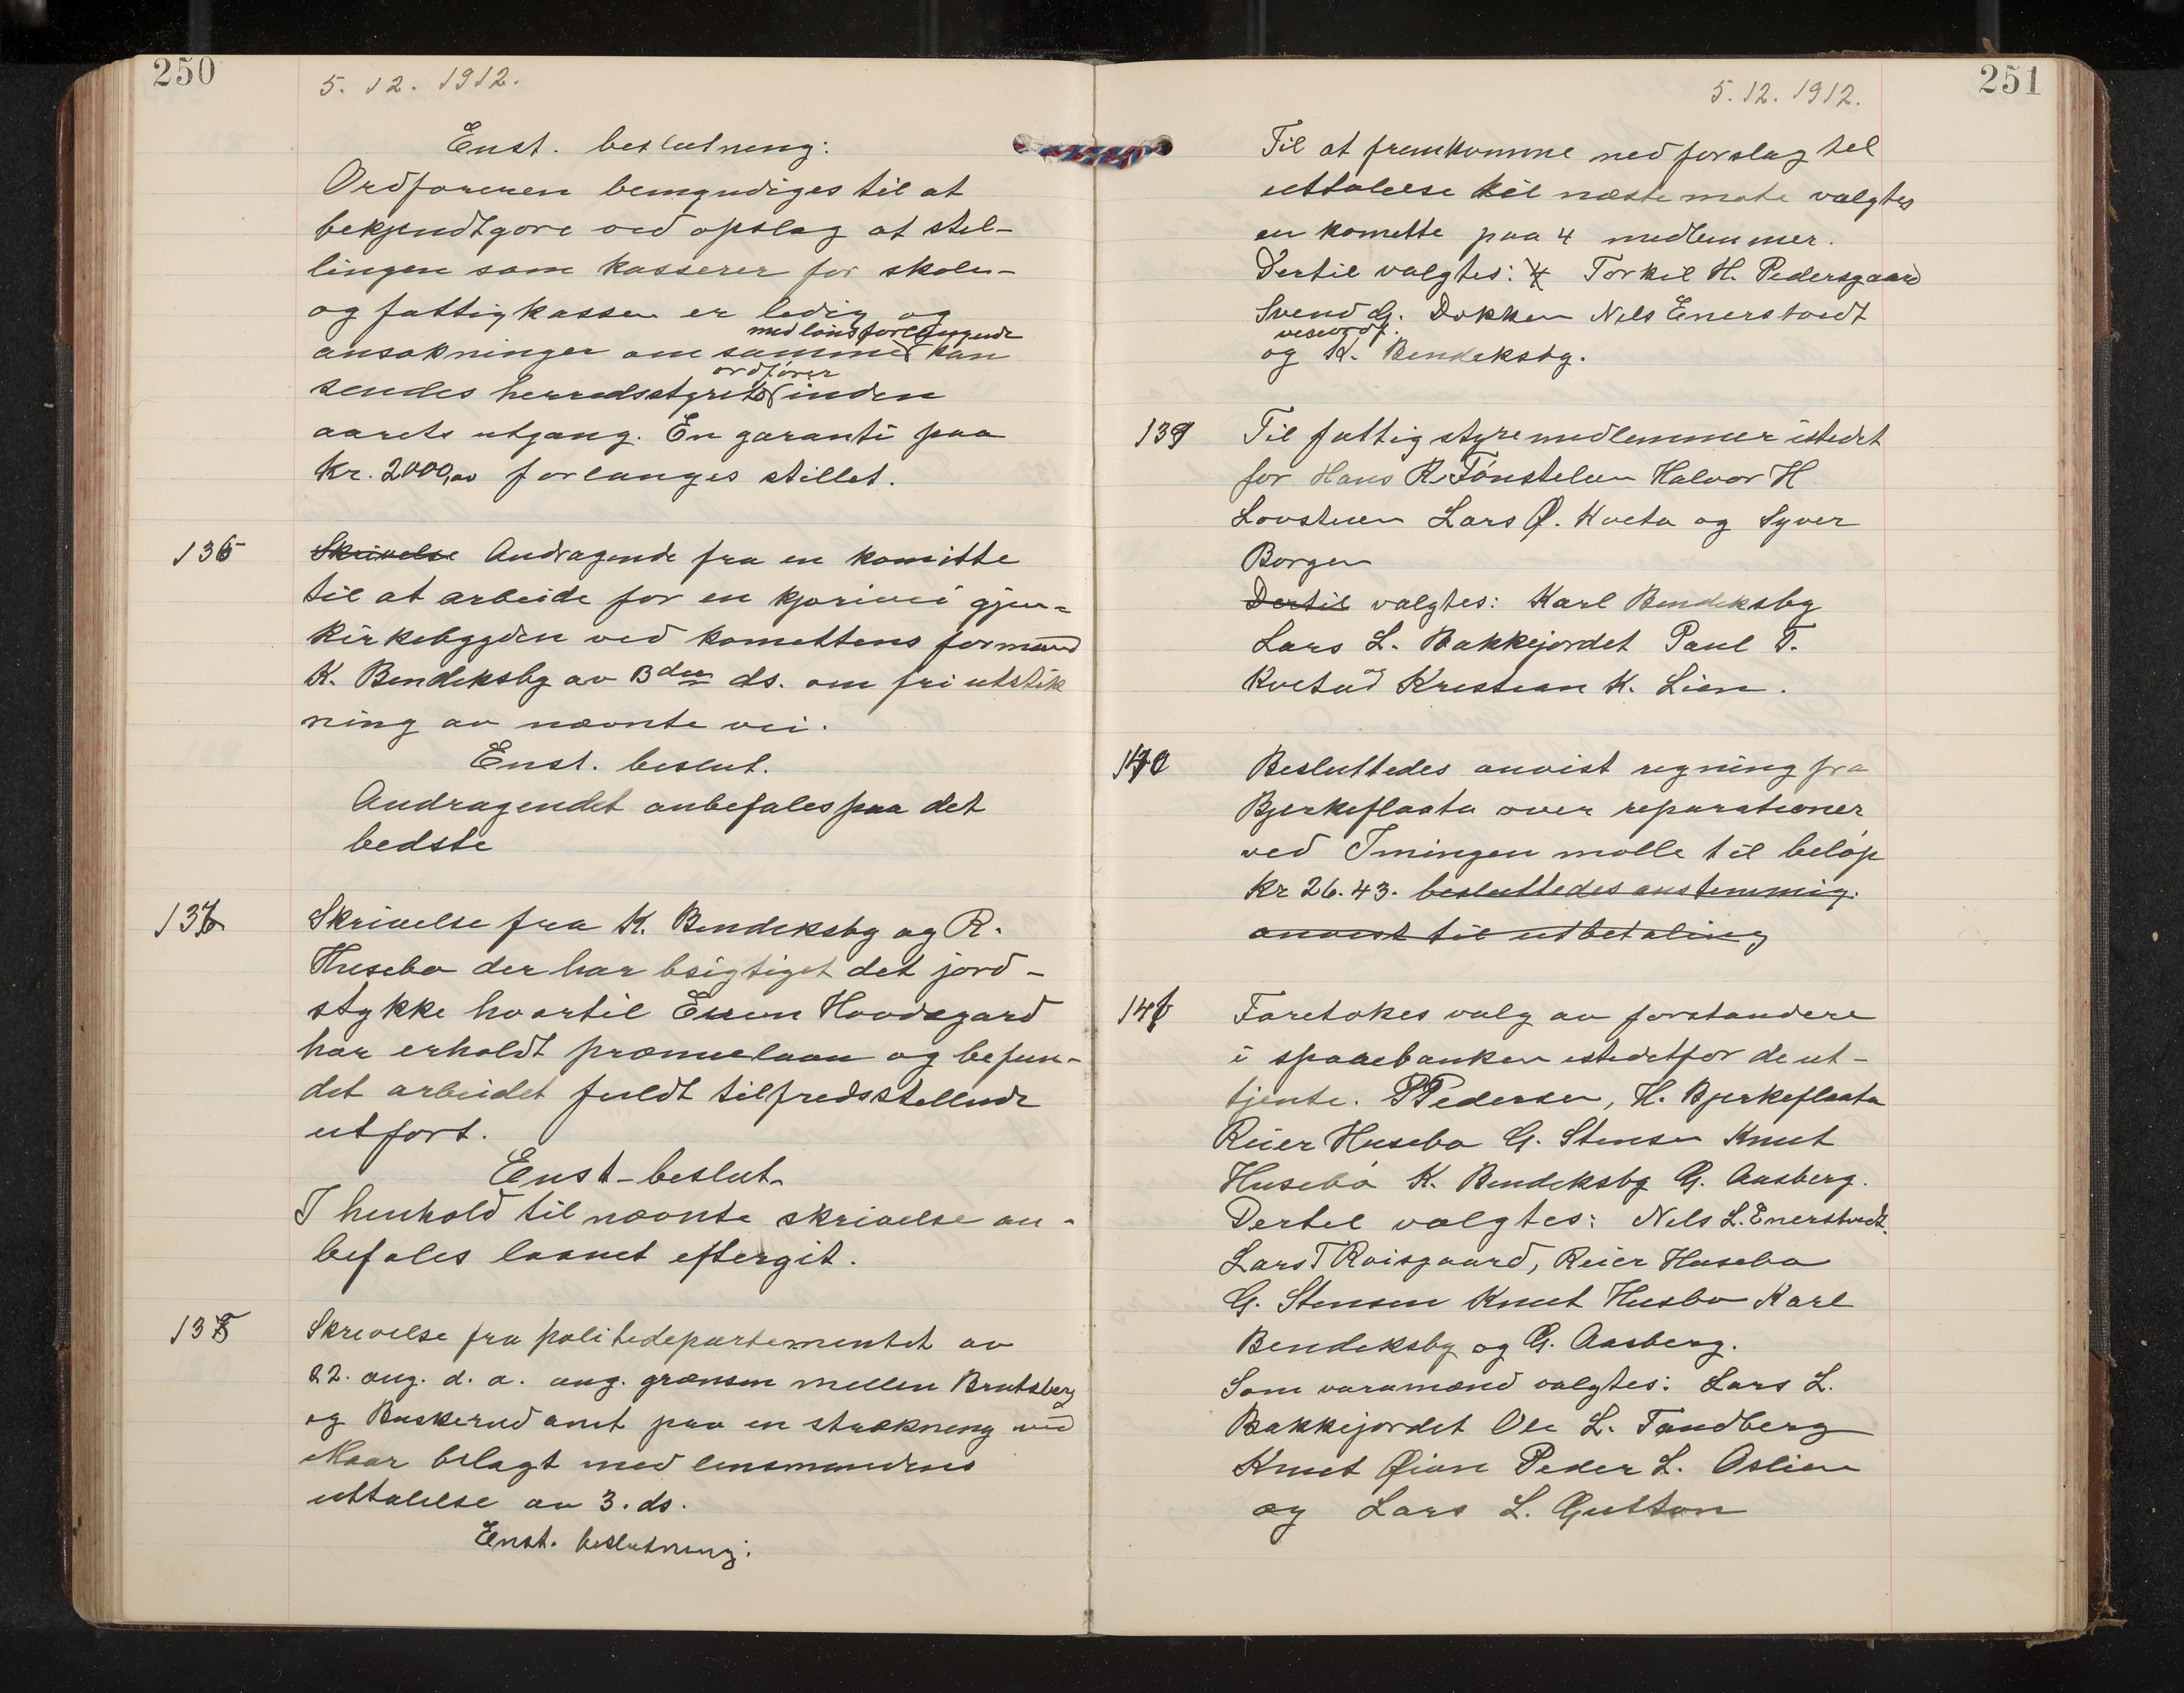 250
5. 12. 1912.
Enst. beslutning:
Ordføreren bemyndiges til at
bekjendtgøre ved opslag at stel-
lingen som kasserer for skole-
og fattigkassen er ledig og
med lønsforlangende
ansøkninger om samme kan
ordfører
sendes herredsstyrets inden
aarets utgang. En garanti paa
Kr. 2000,00 forlanges stillet.
136 Skrivelse Andragende fra en komitte
til at arbeide for en kjørivei gjen-
kirkebygden ved komettens formand
K. Bendeksby av 3den ds. om fri utstik
ning av nævnte vei.
Enst. beslut.
Andragendet anbefales paa det
bedste
137 Skrivelse fra K. Bendeksby og R.
Husebø der har bsigtiget det jord-
stykke hvortil Essen Hovdsgard
har erholdt præmielaan og befun-
det arbeidet fuldt tilfredsstellende
utført.
Enst-beslut.
I henhold til nævnte skrivelse an-
befales laanet eftergit.
138 Skrevelse fra politedepartementet av
22. aug. d. a. ang. grænsen mellen Bratsberg
og Buskerud amt paa en strækneng ved
Maar belagt med lensmandens
uttalelse av 3. ds.
Enst. beslutning:
251
5. 12. 1912.
Til at fremkomme med forslag tel
uttalelse til næste møte valgtes
en komette paa 4 medlemmer.
Dertil valgtes: 4 Torkil H. Pedersgaard
Svend G. Dokken Nils Enerstvedt
viseordf.
og K. Bendeksby.
139 Til fattigstyremedlemmer istedet
for Hans R. Tønstelien Halvor H
Lovstuen Lars Ø. Kveta og Syver
Borgen
Dertil valgtes: Karl Bendeksby
Lars L. Bakkejordet Paul T.
og
Kvetad Krestian K. Lien.
140 Besluttedes anvist regning fra
Bjerkeflaata over reparationer
ved Imingen mølle til beløp
Kr 26.43. besluttedes enstemmig.
anvist til utbetaling
141 Foretokes valg av forstandere
i sparebanken istedetfor de ut-
tjente. P Pedersen, H. Bjerkeflaata
Reier Husebø G. Stensen Knut
Husebø K. Bendeksby G. Aasberg.
Dertel valgtes: Nils L. Enerstvedt.
Lars T Roisgaard, Reier Husebø
G. Stensen Knut Husbø Karl
Bendeksby og G. Aasberg.
Som varamænd valgtes: Lars L.
Bakkejordet Ole L. Tandberg
Knut Øian Peder L. Aslien
og Lars L. Gutton